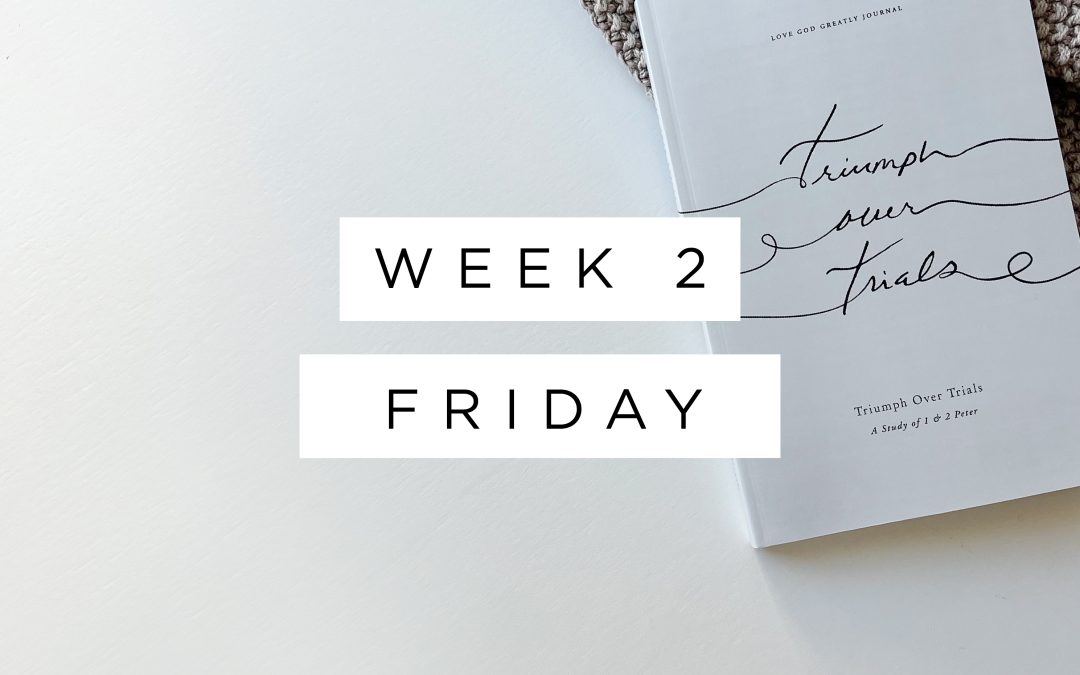 LOVE GOD GREATLY JOURNAL
Triumph
over
Trials
WEEK 2
FRIDAY
Triumph Over Trials
A Study of 1 & 2 Peter